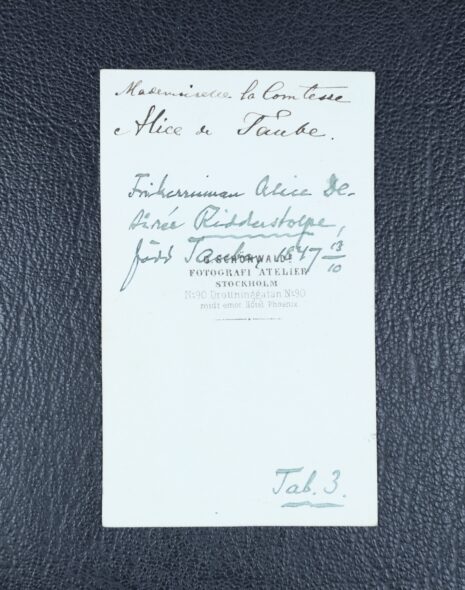 Mademoiselle la Comtesse
Alice de Taube.
Friherrinnan Alice De-
sirée Ridderstolpe,
född Taube, 1847 3/10
SCHÖNWALDS
FOTOGRAFI ATELIER
STOCKHOLM
No90 Drottninggatan No90
midt emot Hôtel Phoenix
Tab. 3.